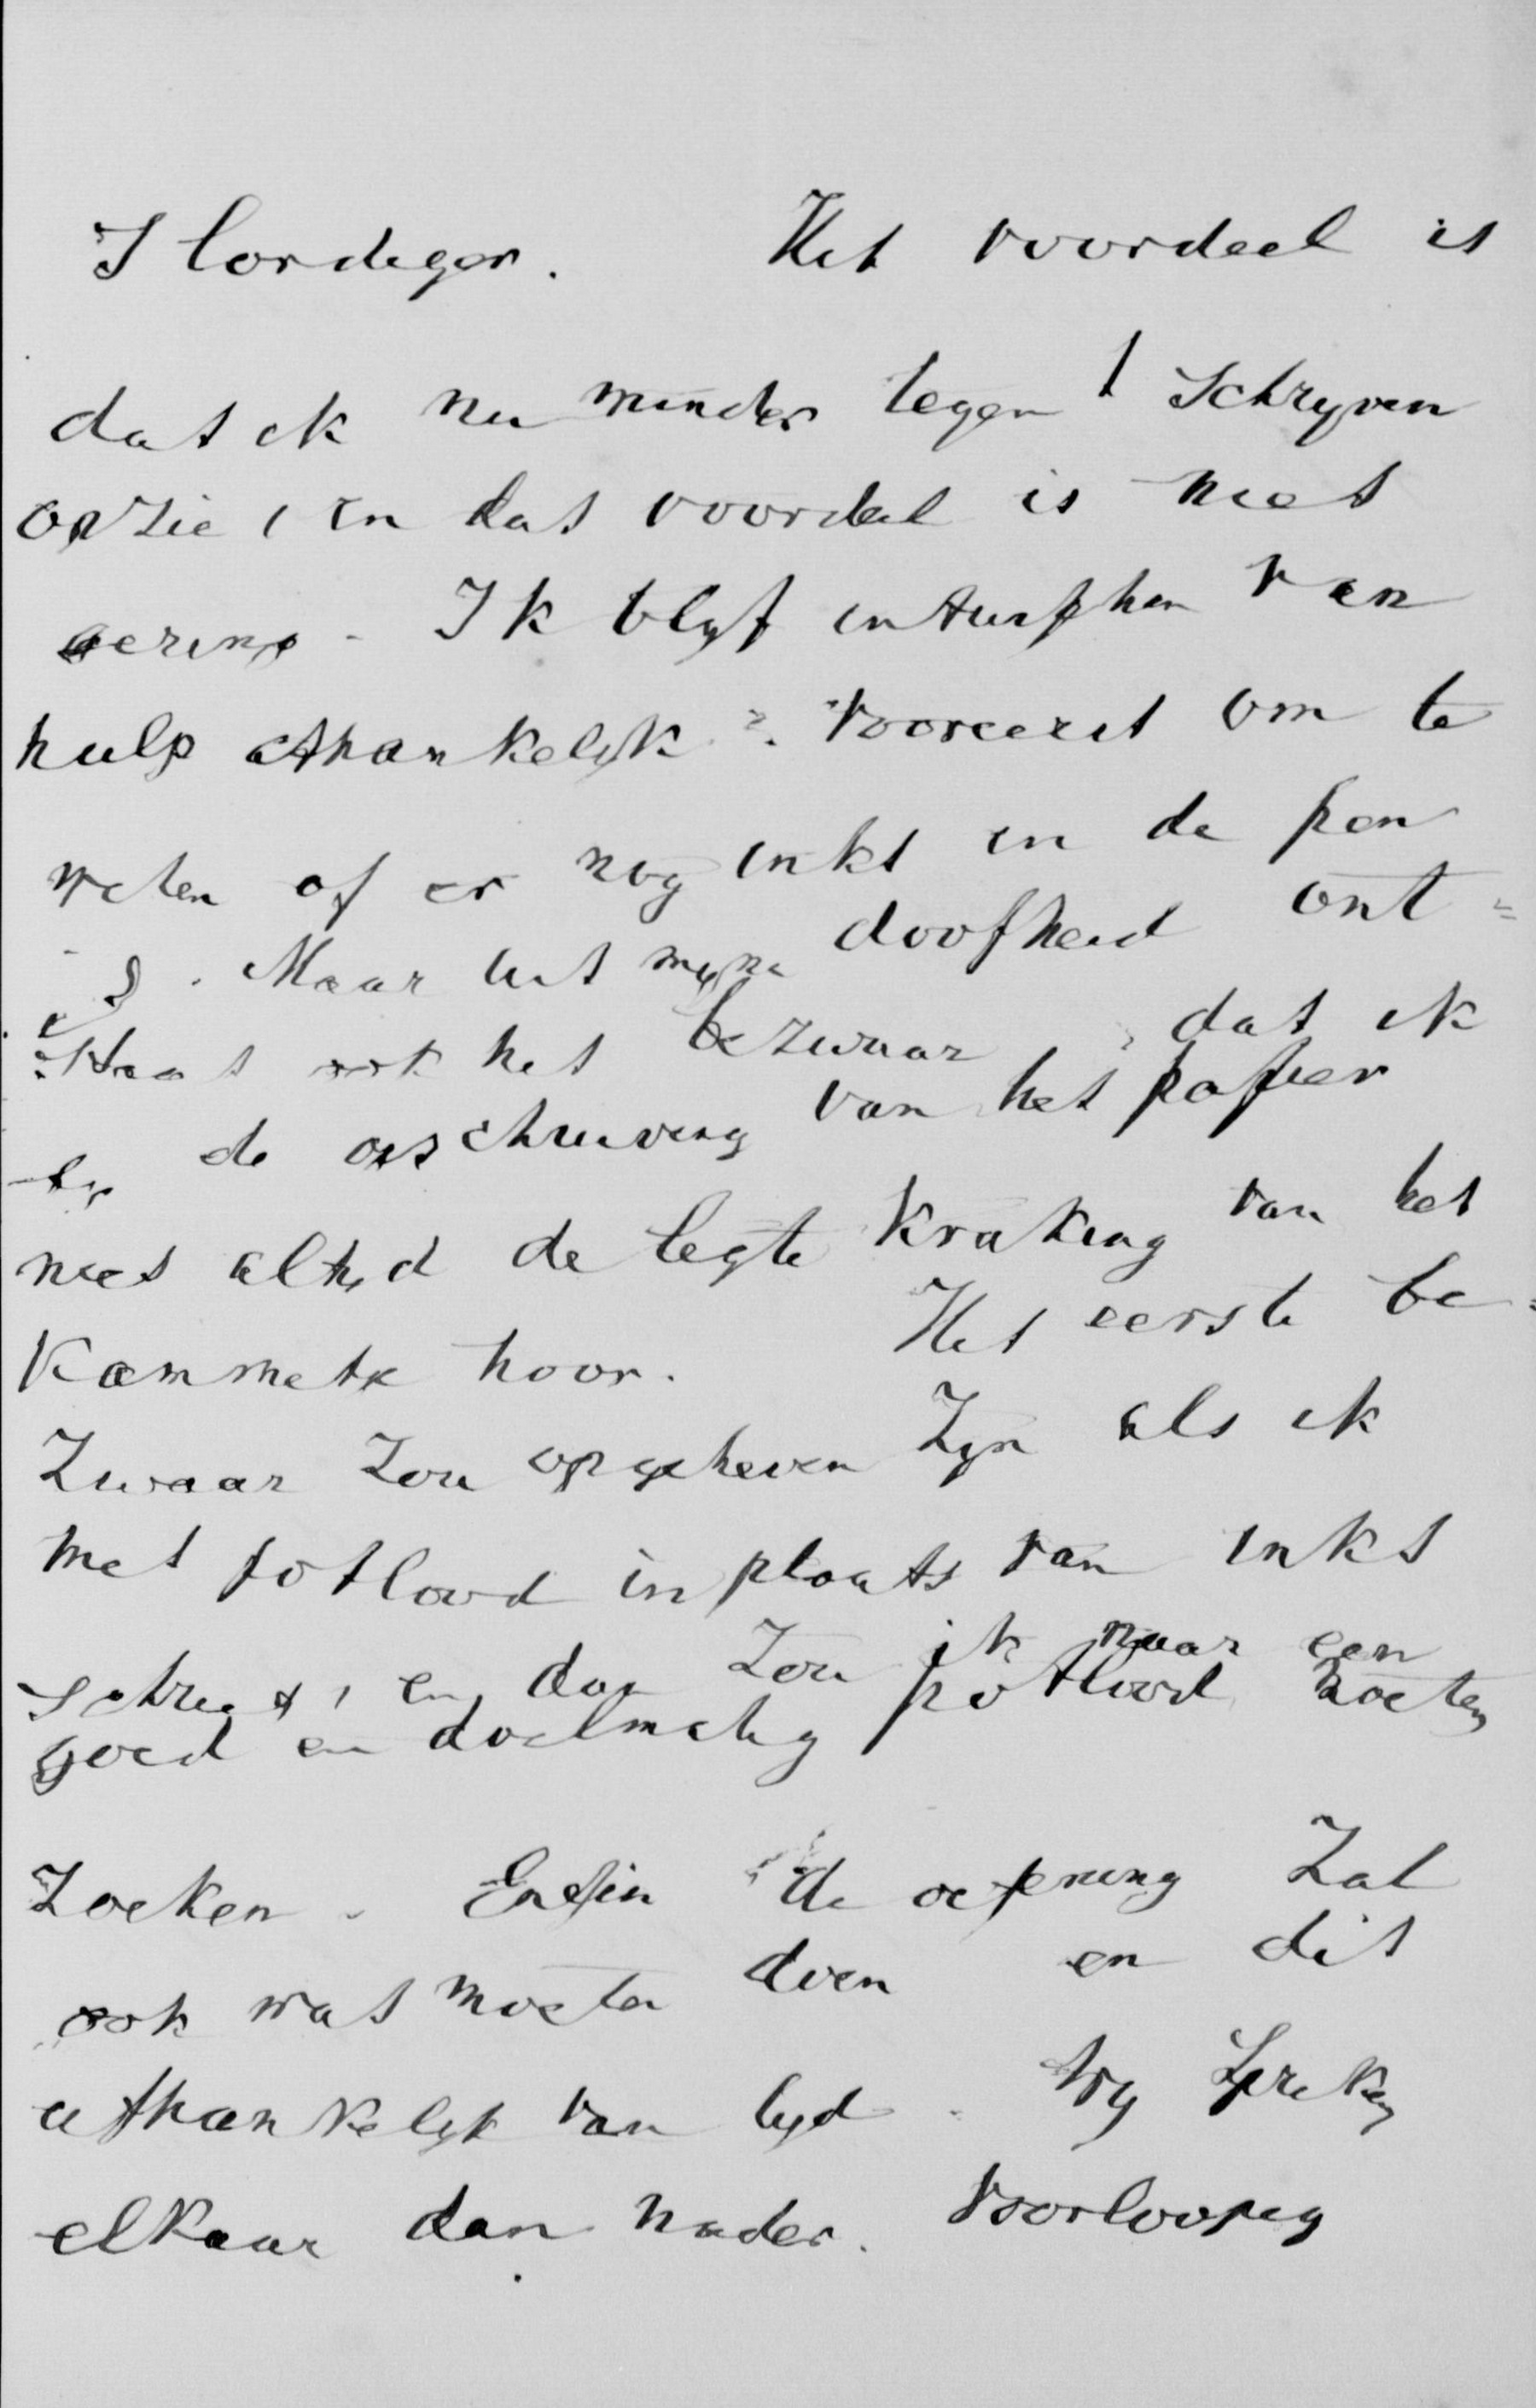 Slordiger. Het voordeel is
dat ik nu minder tegen 't Schryven
opzie, en dat voordeel is niet
gering. Ik blyf intusschen van
hulp afhankelyk: vooreerst om te
weten of er nog inkt in de pen
is. Maar uit myne doofheid ont=
=staat ook het bezwaar, dat ik
by de opschuiving van het papier
niet altyd de legte kraking van het
Kammetje hoor. Het eerste be=
Zwaar Zou opgeheven Zyn als ik
met potlood in plaats van inkt
schreef, en dan Zou ik naar een
goed en doelmatig potlood moeten
Zoeken. Enfin de oefening Zal
ook wat moeten doen en dit
afhankelyk van tyd. Wy Spreken
elkaar dan nader. Voorloopig